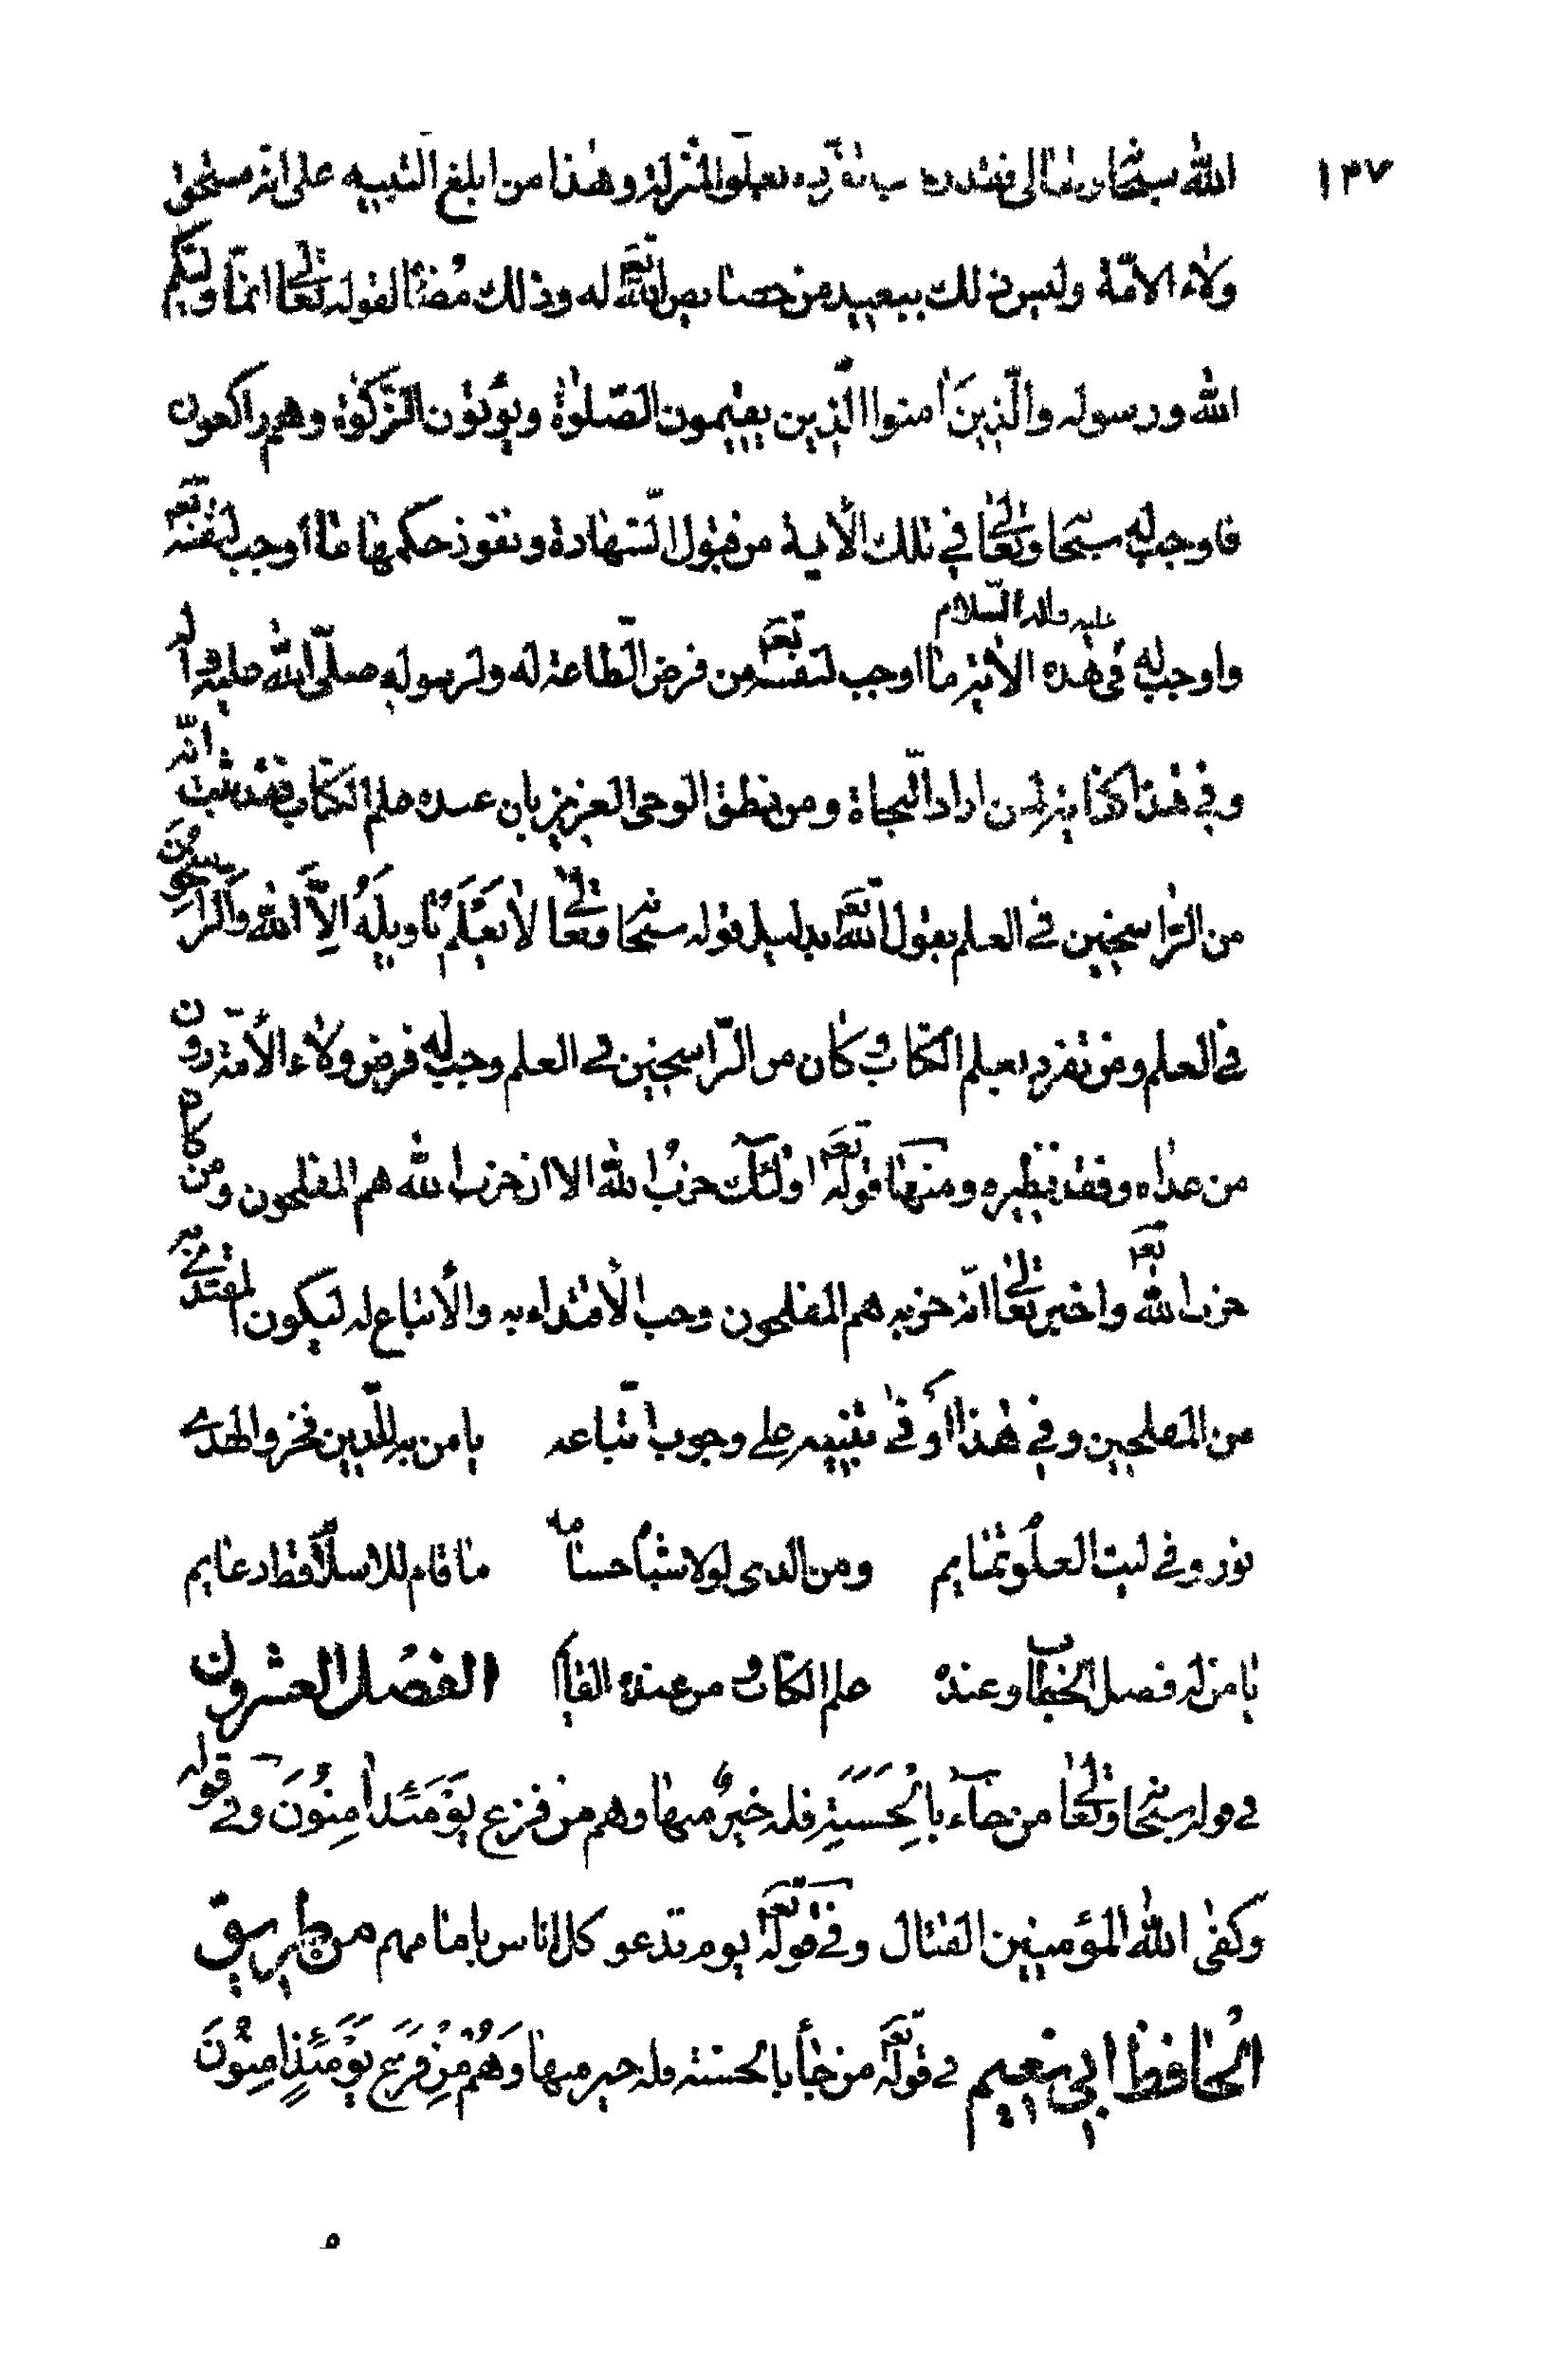 ١٣٧
الله سبحانه وتعالى فقد وهذا من ابلغ التنبيه على انه مستحق
ولاء الامّة وليس ذلك ببعيد من خصايص الله تعم له وذلك مضئا لقوله تعالى انما وليكم
الله ورسوله والّذين اٰمنوا الّذين يقيمون الصّلوٰة ويؤتون الزّكوٰة وهم راكعون
فاوجب له سبحانه وتعالى في تلك الأية من قبول الشهادة ونفوذ حكمها ما أوجب لنفسه تعم
واوجب له عليه واله السلام في هذه الأية ما اوجب لنفسه تعم من فرض الطّاعة له ولرسوله صلّى الله عليه واله
وفي هذا كفاية لمن اراد النّجاة ومن نطق الوحى العزيز بان عنده علم الكتاب فقد ثبت انّه
من الرّاسخين في العلم بقول الله تعم بدليل قوله سبحانه وتعالى لا يَعْلَمُ تاويلَهُ الاَّ الله والرّاسخونَ
في العلم ومن تفرد بعلم الكتاب وكان من الرّاسخين في العلم وجب له فرض ولاء الأمّة دون
من عداه وفقد نظيره ومنها قوله تعم اولئك حزبُ الله الا ان حزب الله هم المفلحون ومن كان
حزب الله تعم واخبر تعالى انّ حزبه هم المفلحون وجب الأقتداء به والأتباع له ليكون المقتدي به
من المفلحين وفي هٰذا أوفى تنبيه على وجوب اتّباعه يا من به للدين فخر والهدى
نور وفي ليت العلو تمايم ومن الذى لولا شبا حسامه ما قام للاسلام قط دعايم
يا من له فصل الخطاب وعنده علم الكتاب ومن عنده الفصل العشرون
في قوله سبحانه وتعالى من جاۤء بالْحَسَنَةِ فله خيرٌ منها وهم من فزع يَوْمَئذ اٰمِنُونَ وفي قوله
وكفى الله المؤمنين القتال وفي قوله تعم يوم ندعو كل اناس بامامهم من طريق
الحافظ ابي نعيم في قوله تعم من جأ بالحسنة فله خير منها وَهُمْ مِنْ فَزَعٍ يَوْمَئِذٍ اٰمِنُونَ